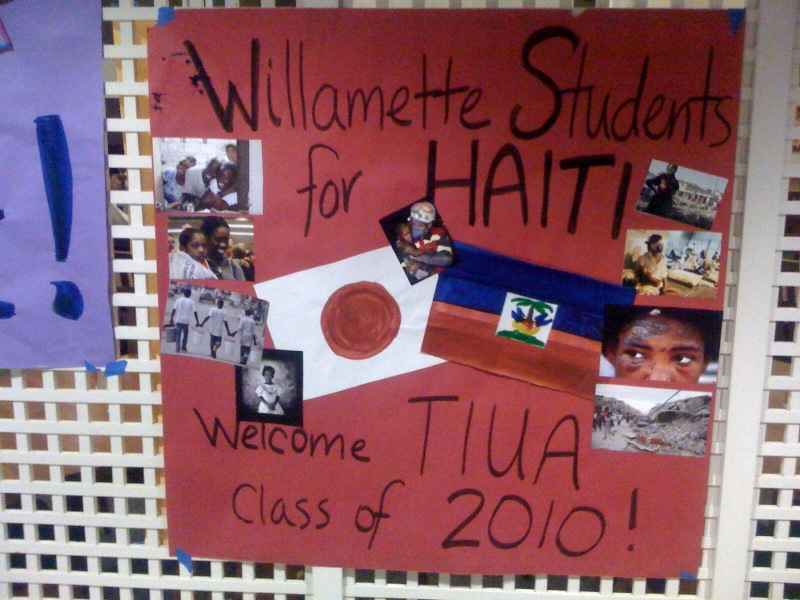 Willamette Students
for HAITI
Welcome TIUA
Class of 2010!
!